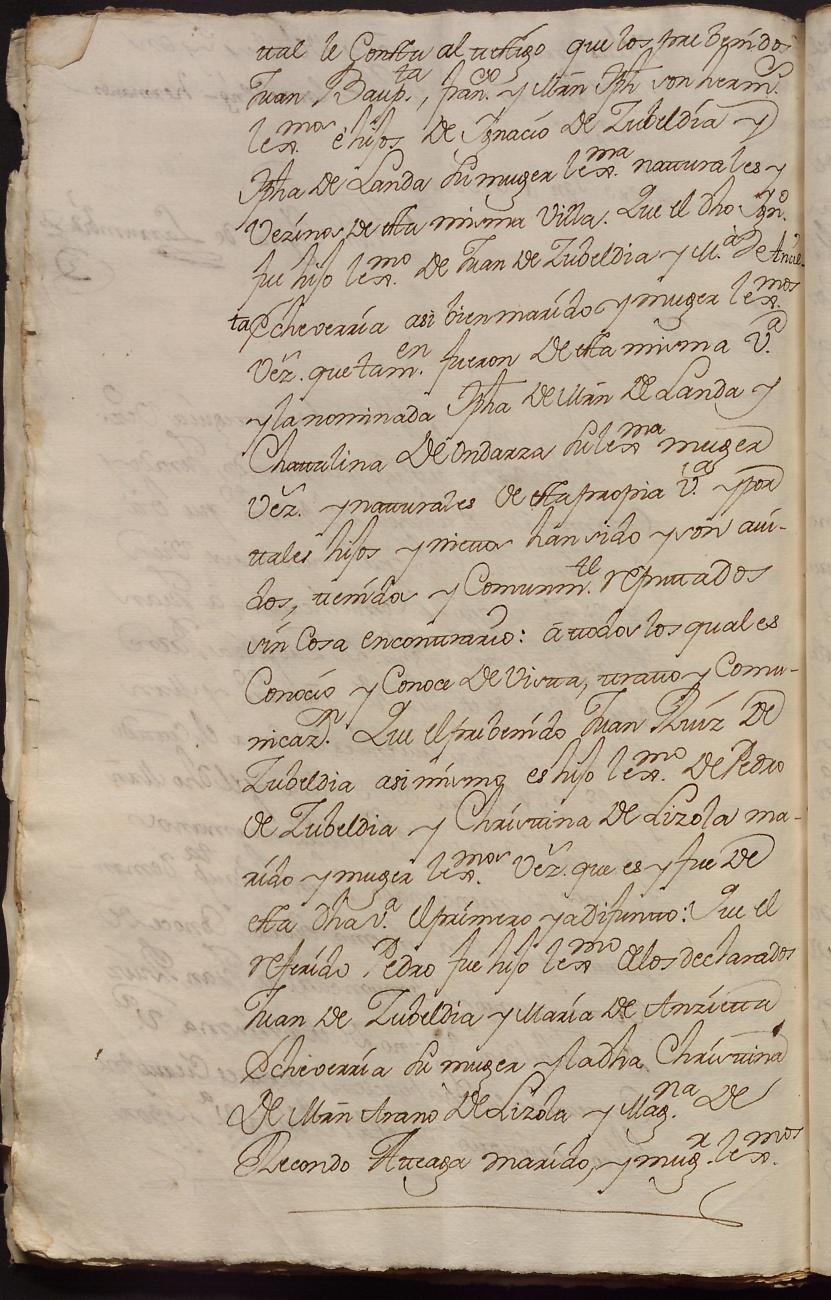 tal le Consta al testigo que los prebenidos
Juan Baup.ta, fran.co y Mrn Jph son herm.s
lex.mos é hijos de Ignacio de Zubeldia y
Jpha de Landa su muger lex.ma naturales y
Vezinos de esta misma Villa. Que el dho Ign.o
fue hijo lex.mo de Juan de Zubeldia y M.a De Anzie-
ta Echeverria asi bien marido y muger lex.mos
Vez.s que tam.en fueron de esta misma V.a
y la nominada Jpha de Mrn de Landa y
Chatalina De Ondarra su lex.ma muger
Vez.s y naturales de esta propia V.a y por
tales hijos y nietos han sido y son avi-
dos, tenidos y Comunm.te reputados
sin Cosa en contrario: á todos los quales
Conocio y Conoce de Vista, trato y Comu-
nicaz.n Que el prebenido Juan Ruiz de
Zubeldia asi mismo es hijo lex.mo de Pedro
de Zubeldia y Christina de Lizola ma-
rido y muger lex.mos Vez.s que es y fue de
esta dha v.a el primero ya difunto: Que el
referido Pedro fue hijo lex.mo de los declarados
Juan de Zubeldia y Maria de Anzieta
Echeverria su muger y la dha Christina
de Mrn Arano de Lizola y Mag.na de
Recondo Ateaga marido, y mug.r lex.mos